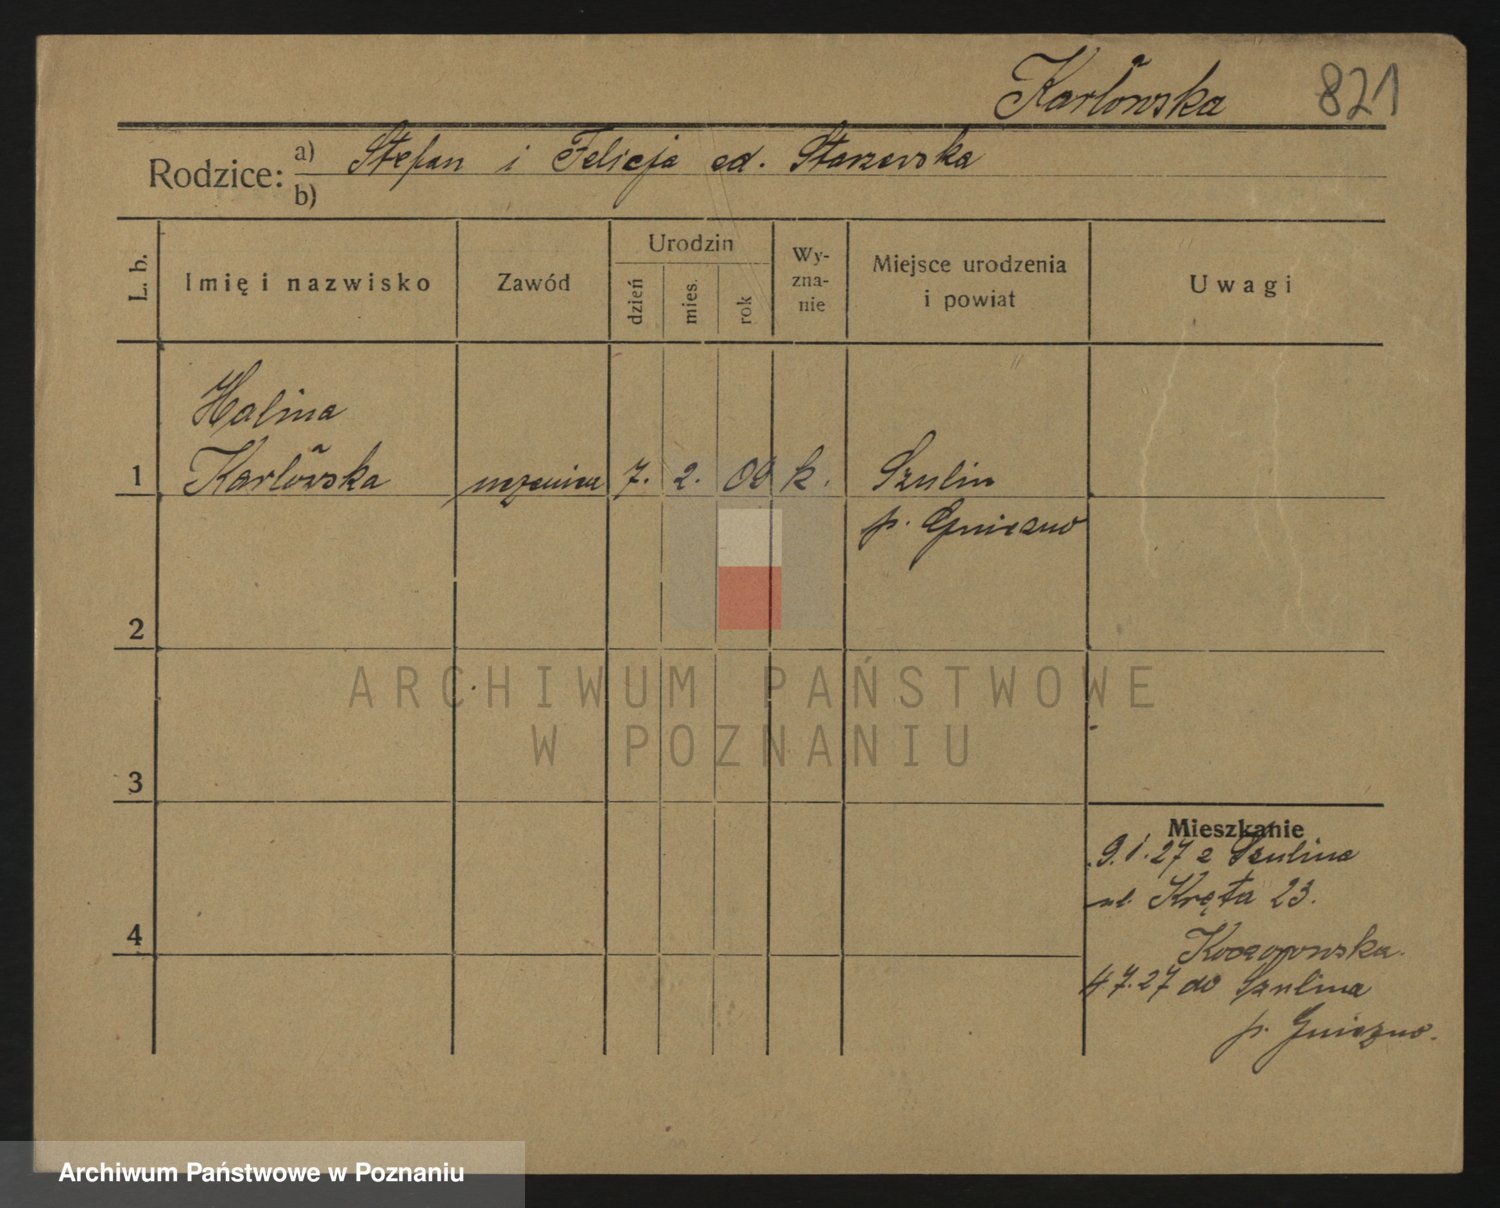 Karłowska 821
Rodzice: a) Stefan i Felicja Starzewska
b)
L. b. Imię i nazwisko Zawód Urodzin dzień mies. rok Wy-zna-nie Miejsce urodzenia i powiat Uwagi
Halina
1 Karłowska uczenica 7. 2. 09 k. Szulin
p. Gniezno
2
ARCHIWUM PAŃSTWOWE
W POZNANIU
3
Mieszkanie
9.1.27 z Szulina
ul. Kręta 23.
4
4.7.27 do Szulina
p. Gniezno.
Archiwum Państwowe w Poznaniu